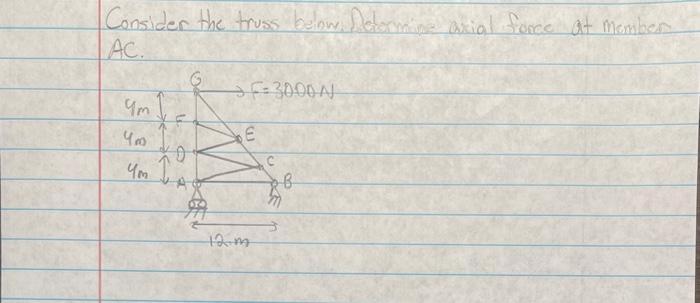 Consider the truss below. Determine axial force at member
AC.
G
F=3000N
4m
F
4m
E
D
C
4m
A
B
12m